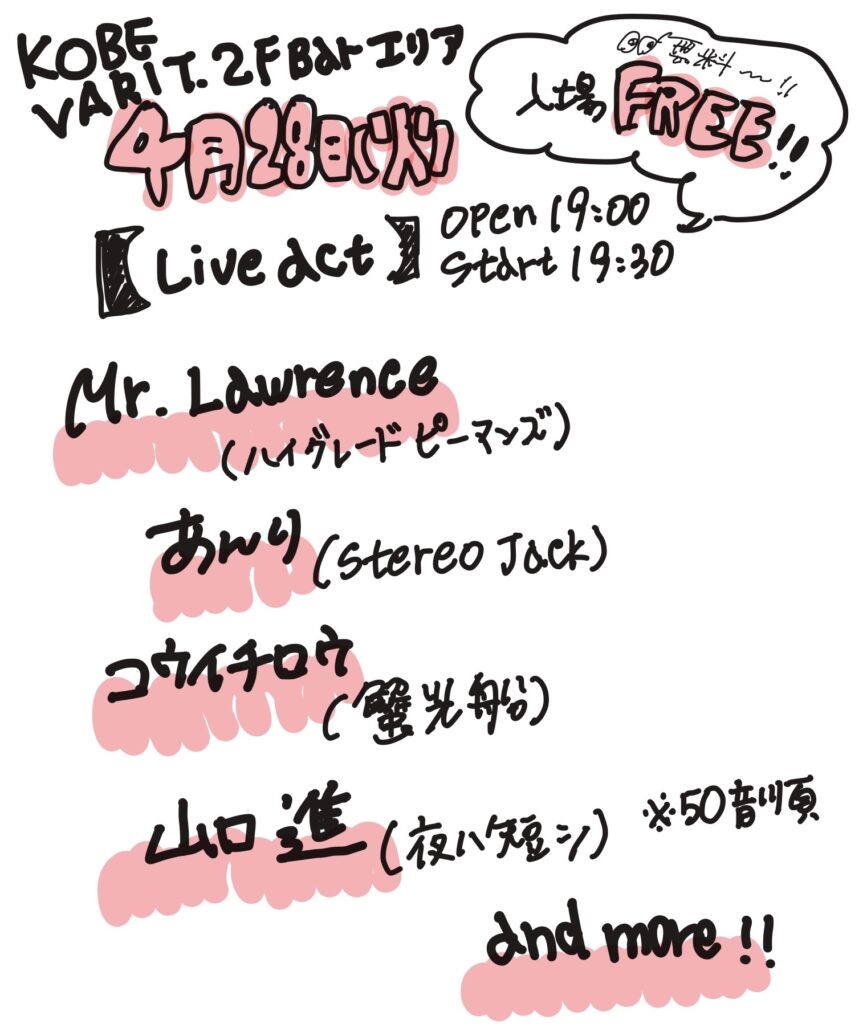 KOBE
VARIT. 2F Bar エリア
4月28日(火)
無料〜!!
入場 FREE!!
【Live act】
open 19:00
Start 19:30
Mr. Lawrence
(ハイグレードピーマンズ)
あんり (Stereo Jack)
コウイチロウ
(蟹光船)
山口 進 (夜ハ短シ)
※50音順
and more!!